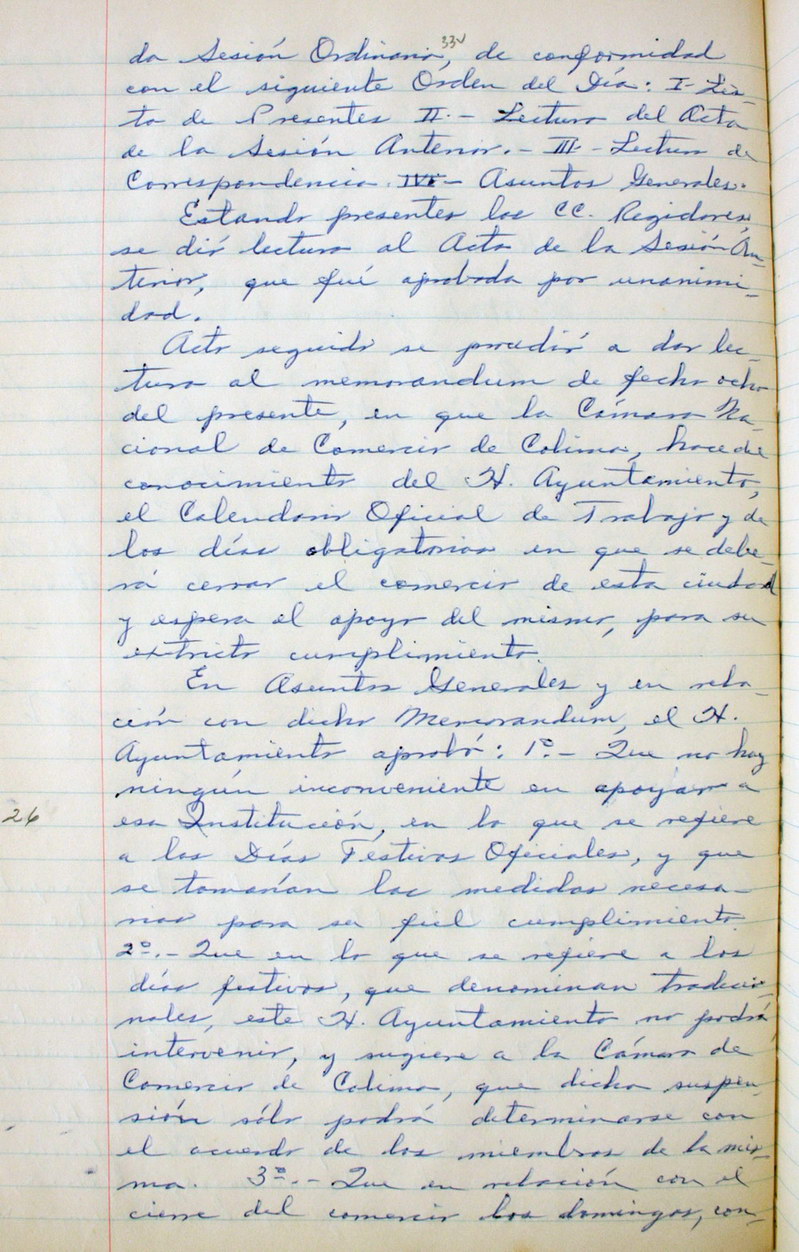 33v
da Sesión Ordinaria, de conformidad
con el siguiente Orden del Día: I- Lis-
ta de Presentes II.- Lectura del Acta
de la Sesión Anterior.- III- Lectura de
Correspondencia. IV- Asuntos Generales.
Estando presentes los CC. Regidores,
se dió lectura al Acta de la Sesión An-
terior, que fué aprobada por unanimi-
dad.
Acto seguido se procedió a dar lec-
tura al memorandum de fecha ocho
del presente, en que la Cámara Na-
cional de Comercio de Colima, hace de
conocimiento del H. Ayuntamiento,
el Calendario Oficial de Trabajo y de
los días obligatorios en que se debe-
rá cerrar el comercio de esta ciudad
y espera el apoyo del mismo, para su
extricto cumplimiento.
En Asuntos Generales y en rela-
ción con dicho Memorandum, el H.
Ayuntamiento aprobó: 1º.- Que no hay
ningún inconveniente en apoyar a
26
esa Institución, en lo que se refiere
a los Días Festivos Oficiales, y que
se tomarían las medidas necesa-
rias para su fiel cumplimiento.
2º.- Que en lo que se refiere a los
días festivos, que denominan tradicio-
nales, este H. Ayuntamiento no podrá
intervenir, y sugiere a la Cámara de
Comercio de Colima, que dicha suspen-
sión sólo podrá determinarse con
el acuerdo de los miembros de la mis-
ma. 3º.- Que en relación con el
cierre del comercio los domingos, con-